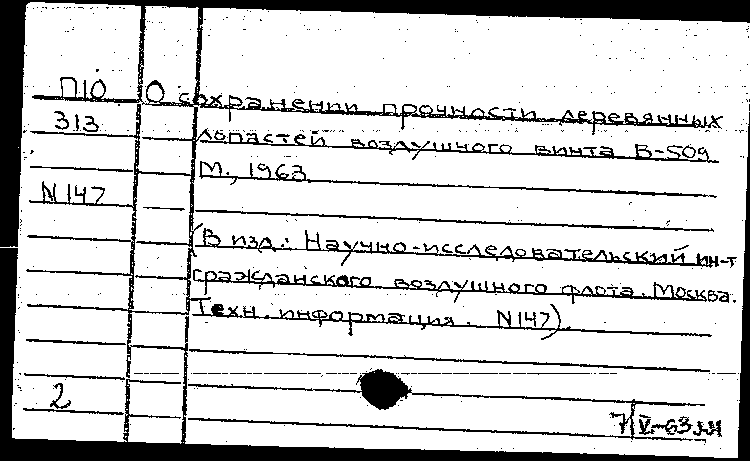 П10 О сохранении прочности деревянных
313 лопастей воздушного винта В-509.
М., 1963.
N147
(В изд.: Научно-исследовательский ин-т
гражданского воздушного флота. Москва.
Техн. информация. N147).
2
7/V-63